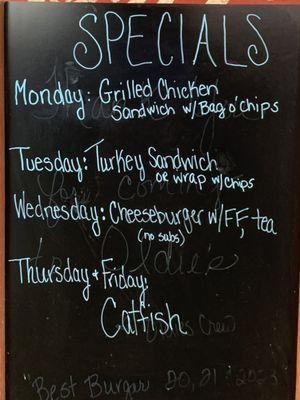 SPECIALS
Monday: Grilled Chicken
Sandwich w/ Bag o' chips
Tuesday: Turkey Sandwich
or wrap w/ chips
Wednesday: Cheeseburger w/ FF, tea
(no subs)
Thursday & Friday:
Catfish
"Best Burger 20, 21 & 2023